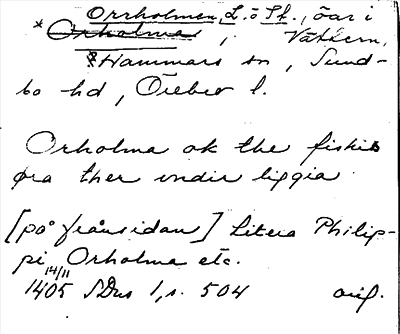 Orrholmen, L. o St., öar i
* Orholma, Vättern,
Hammars sn, Sund-
bo hd, Örebro l.
Orholma ok the fiskis
øra ther vndir liggia
[på frånsidan] Litera Philip-
pi, Orholma etc.
14/11
1405 SDns 1, s. 504 orig.